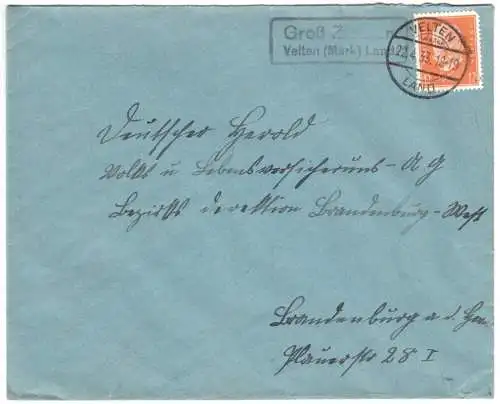 Groß Z
Velten (Mark) Land
VELTEN
2.4.33. 18-19
LAND
Deutscher Herold
Volks u Lebensversicheruns-AG
Bezirks derektion Brandenburg-West
Brandenburg a. d. Hav
Plauerstr 28 I